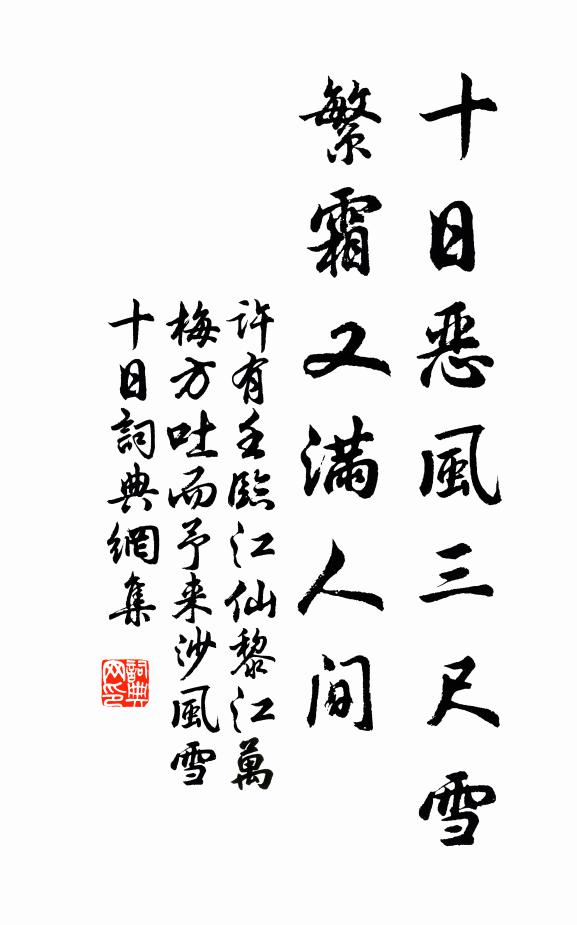 十日恶風三尺雪
繁霜又满人间
許有壬臨江仙黎江萬
梅方吐而予来沙風雪
十日詞典網集
詞典
网印